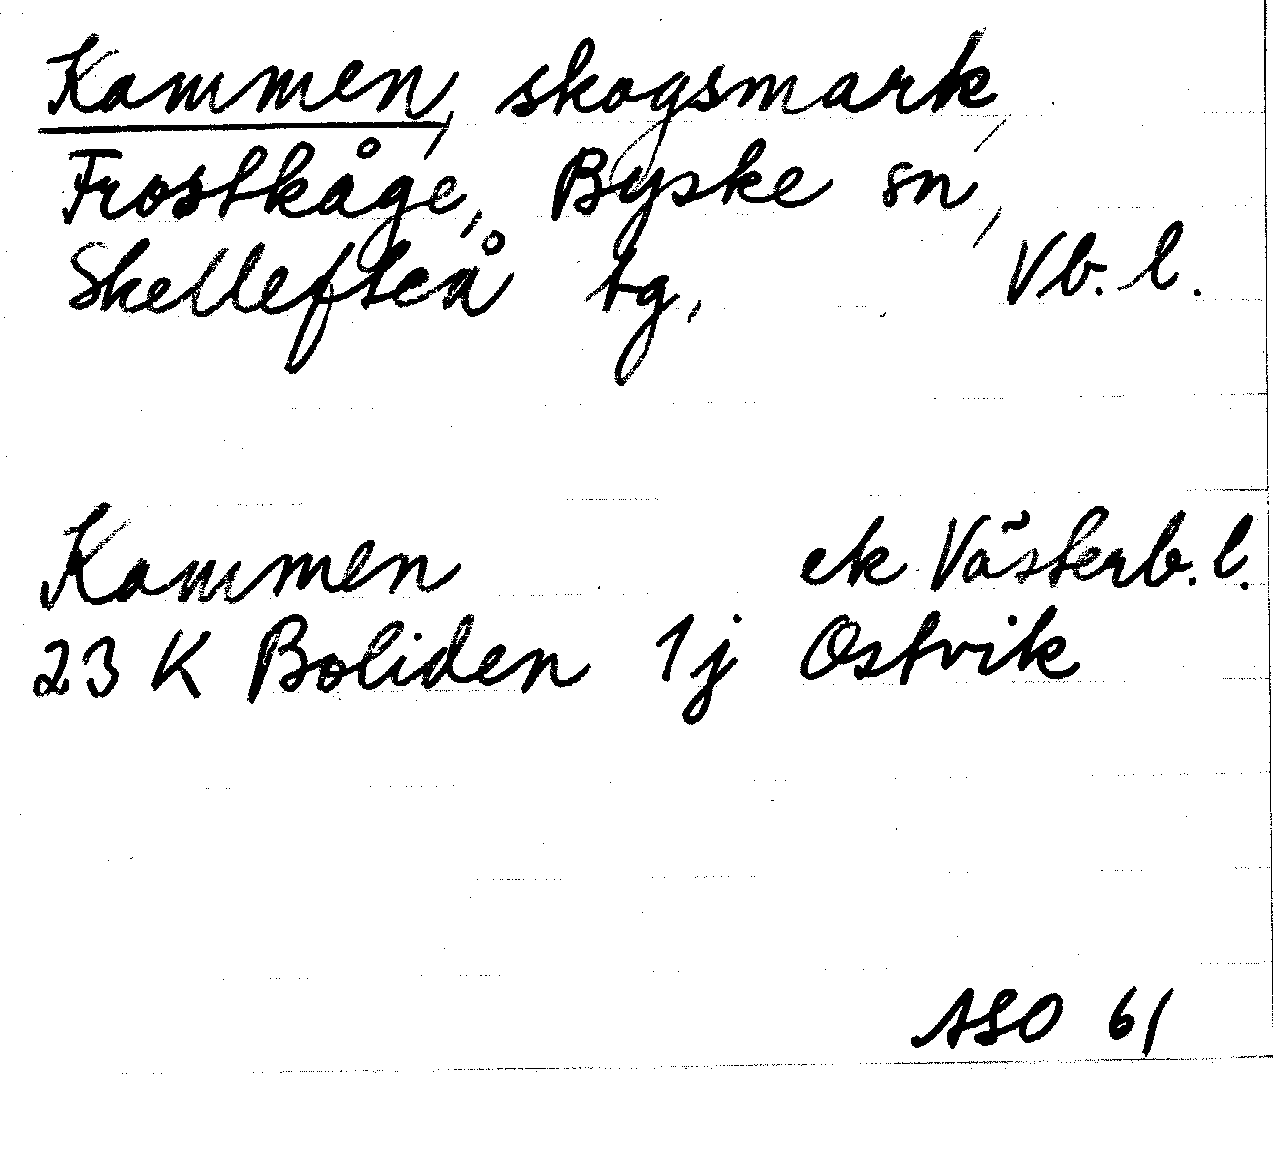 Kammen, skogsmark,
Frostkåge, Byske sn,
Skellefteå tg, Vb. l.
Kammen ek Västerb. l.
23 K Boliden 1j Ostvik
ASO 61